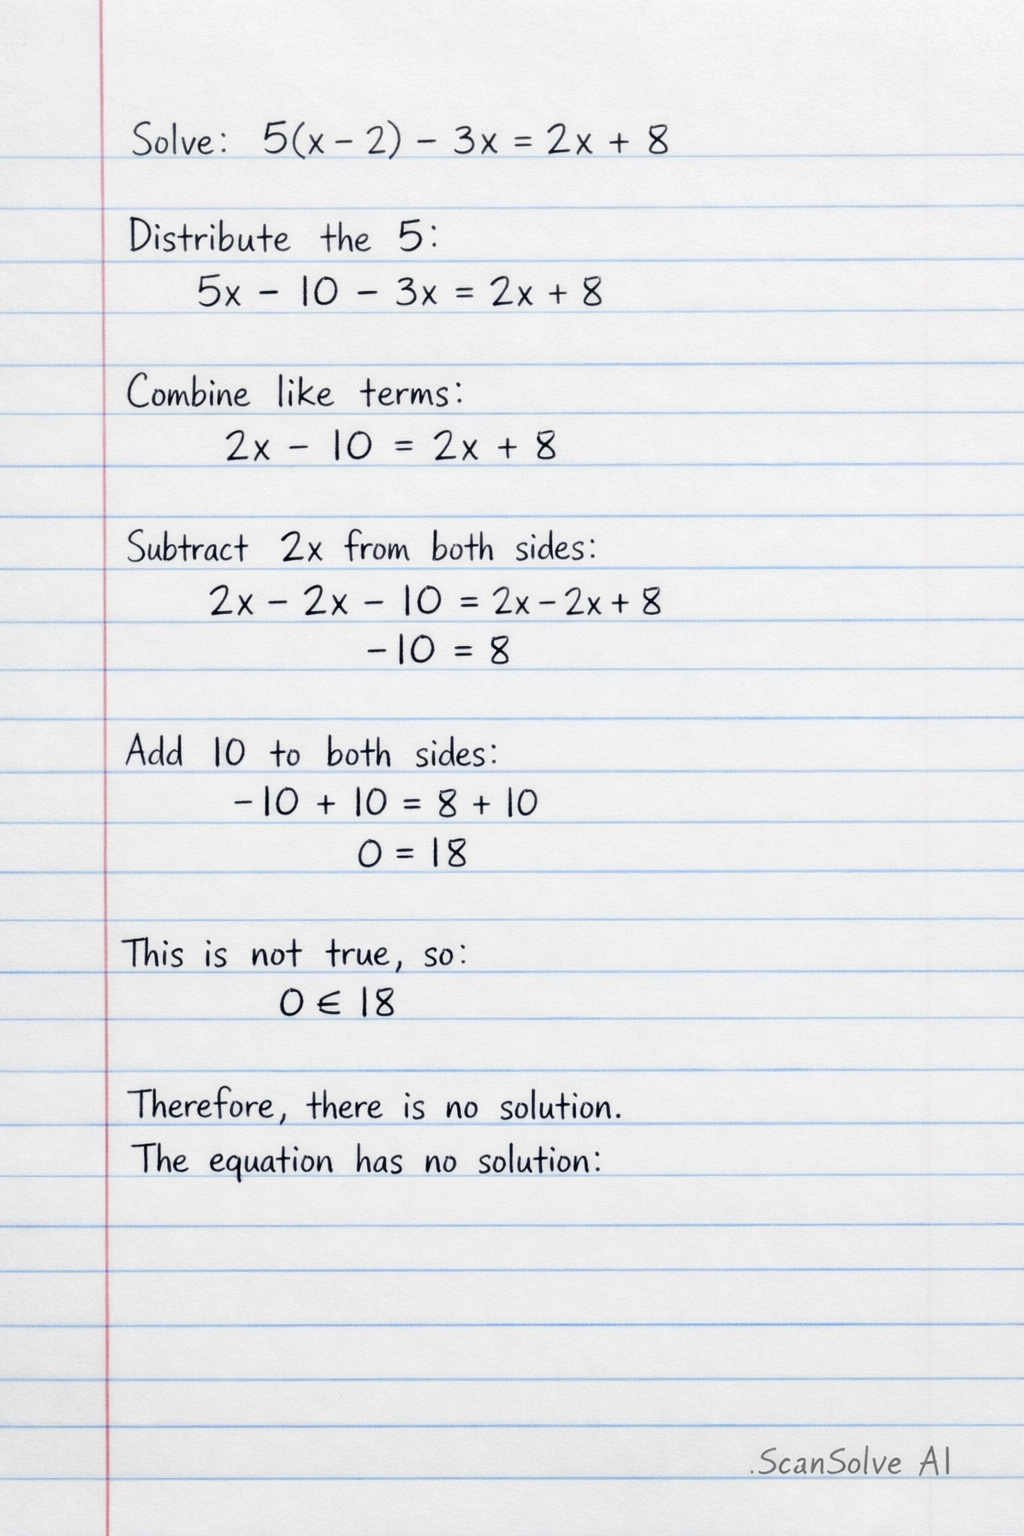 Solve: 5(x - 2) - 3x = 2x + 8
Distribute the 5:
5x - 10 - 3x = 2x + 8
Combine like terms:
2x - 10 = 2x + 8
Subtract 2x from both sides:
2x - 2x - 10 = 2x - 2x + 8
-10 = 8
Add 10 to both sides:
-10 + 10 = 8 + 10
0 = 18
This is not true, so:
0 ∈ 18
Therefore, there is no solution.
The equation has no solution:
.ScanSolve AI